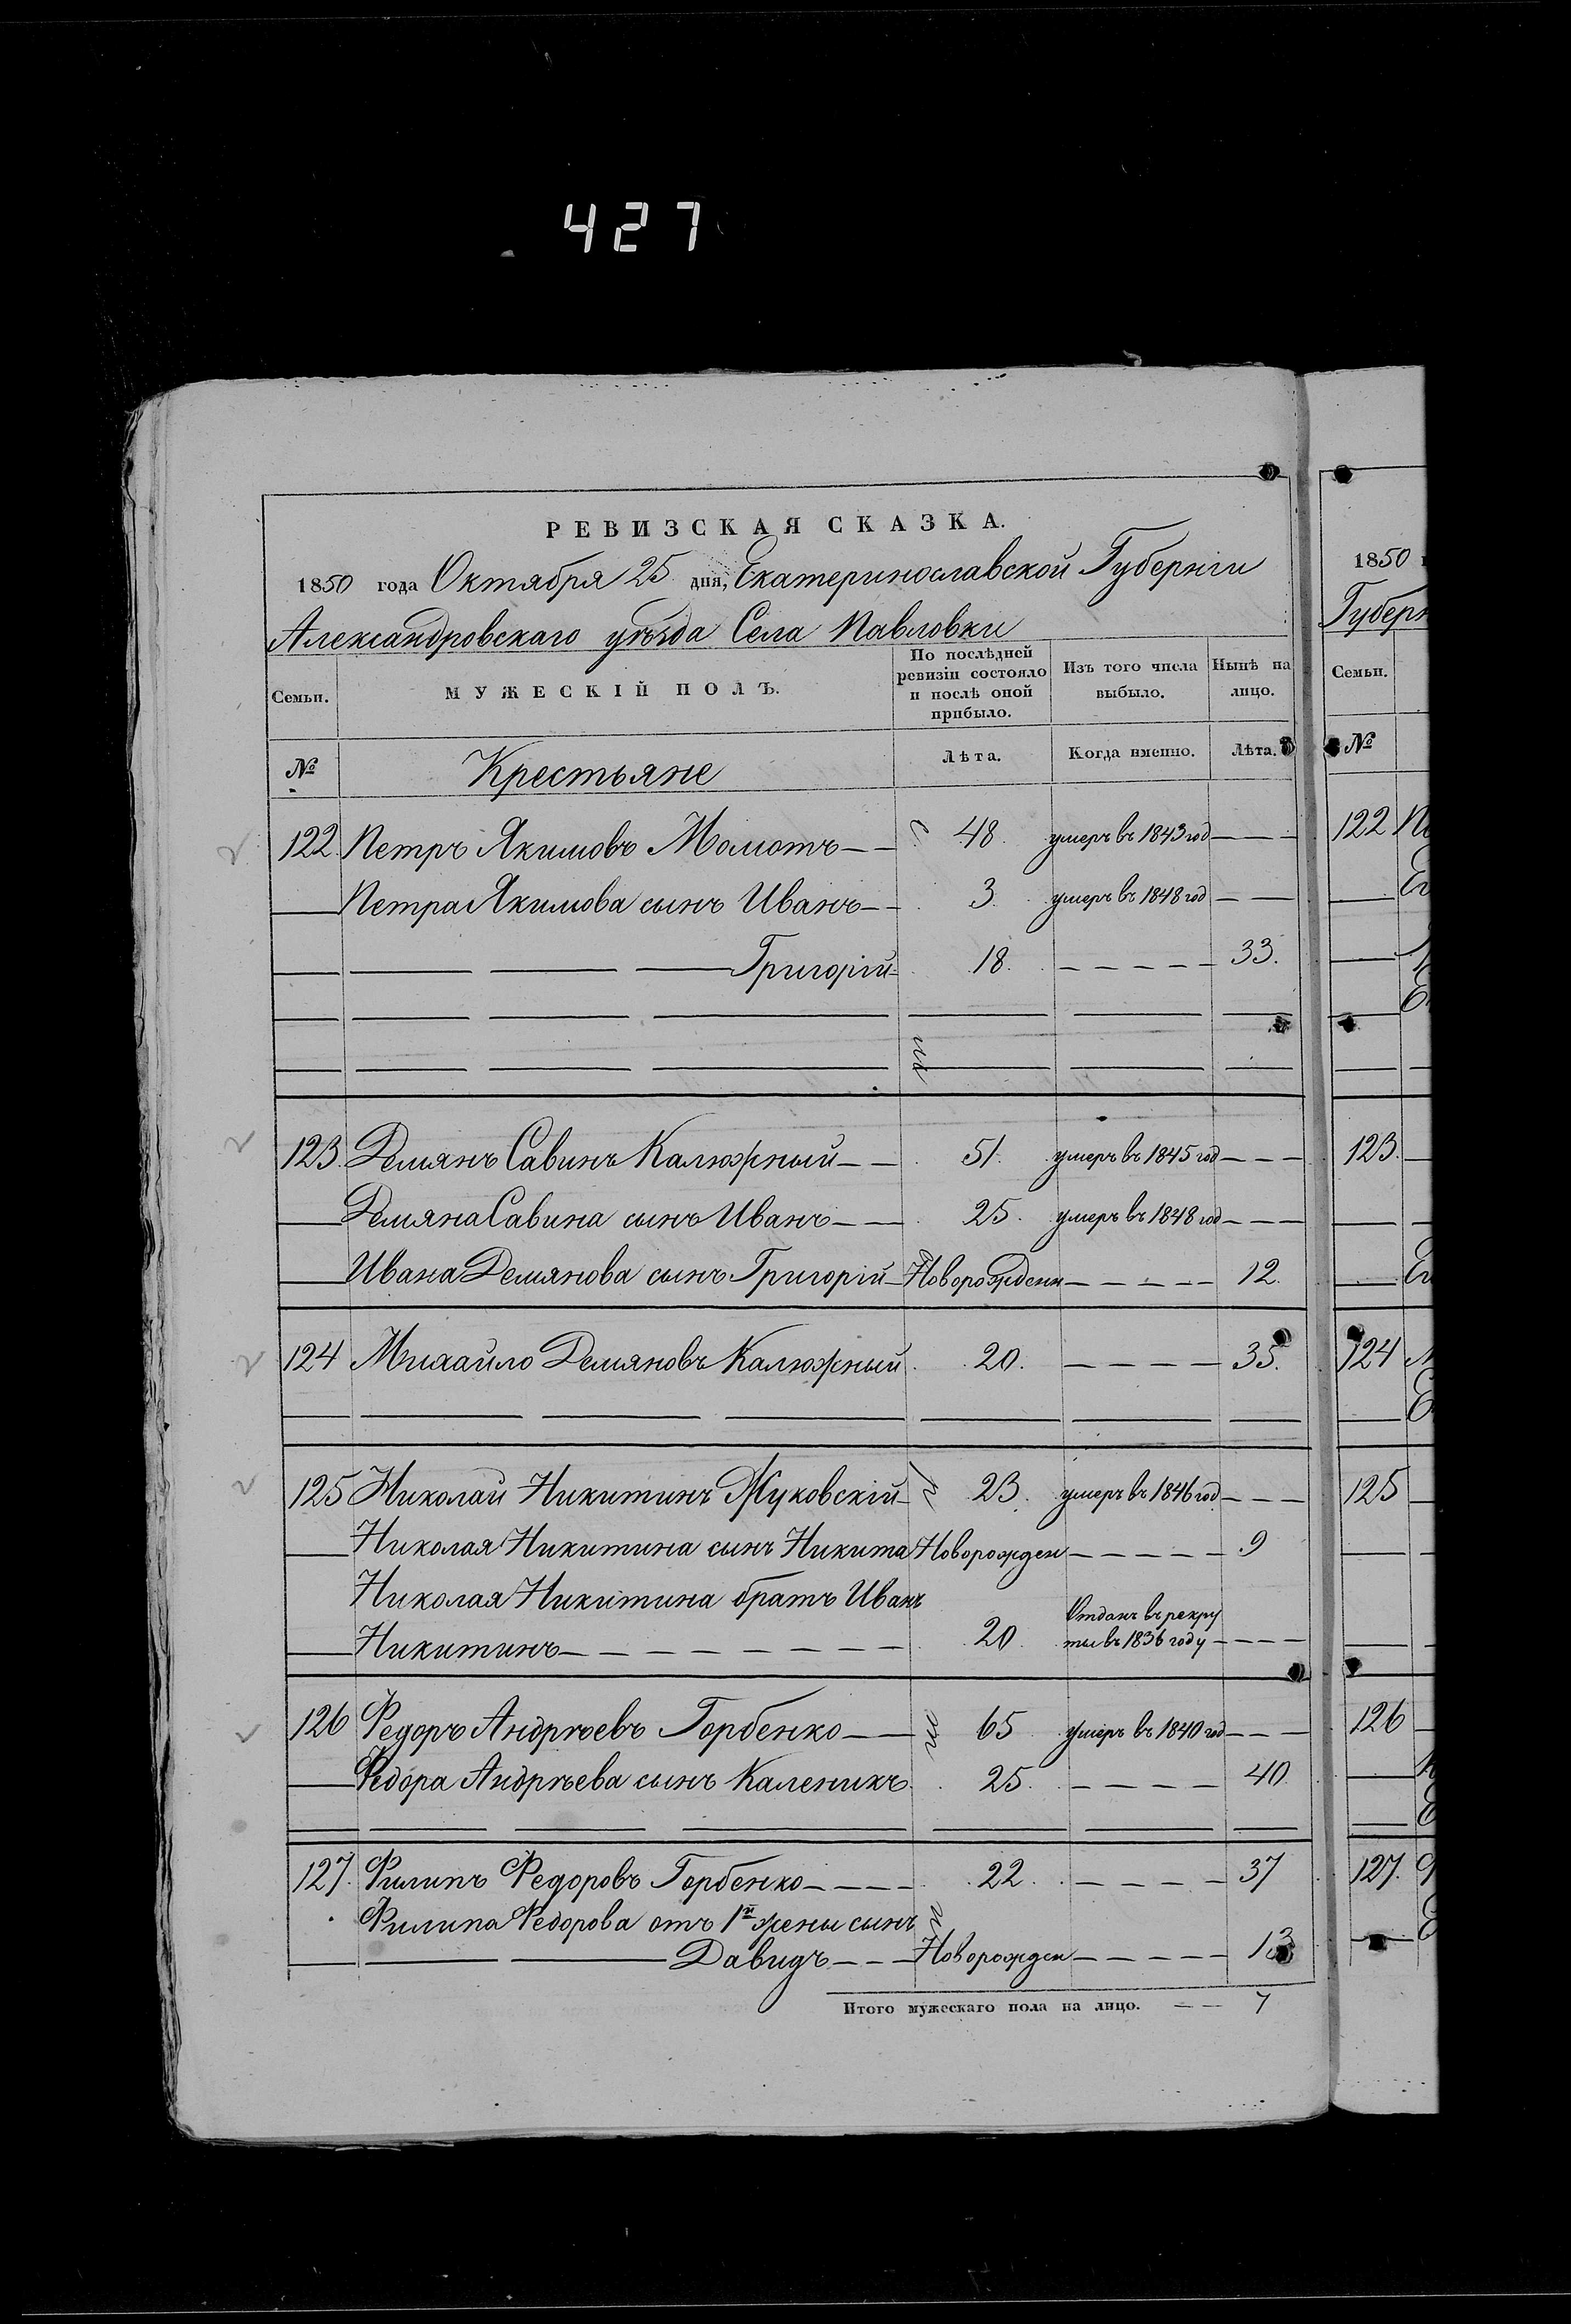 427
РЕВИЗСКАЯ СКАЗКА.
1850 года Октября 25 дня, Екатеринославской Губерніи
Александровскаго уѣзда Села Павловки
Семьи. МУЖЕСКІЙ ПОЛЪ. По послѣдней ревизіи состояло и послѣ оной прибыло. Изъ того числа выбыло. Нынѣ на лицо.
№ Крестьяне Лѣта. Когда именно. Лѣта.
122 Петръ Якимовъ Момотъ 48 умеръ въ 1843 год
Петра Якимова сынъ Иванъ 3 умеръ въ 1848 год
Григорій 18 33.
123. Демянъ Савинъ Калюжный 51. умеръ въ 1845 год
Демяна Савина сынъ Иванъ 25. умеръ въ 1848 год
Ивана Демянова сынъ Григорій Новорожденн 12.
124 Михайло Демяновъ Калюжный 20. 35.
125 Николай Никитинъ Жуковскій 23. умеръ въ 1846 год
Николая Никитина сынъ Никита Новорожден 9
Николая Никитина братъ Иванъ
Никитинъ 20 Отданъ въ рекру
ты въ 1836 году
126 Федоръ Андрѣевъ Горбенко 65 умеръ въ 1840 год
Федора Андрѣева сынъ Каленикъ 25. 40
127. Филипъ Федоровъ Горбенко 22. 37
Филипа Федорова отъ 1й жены сынъ
Давидъ Новорожден 13
Итого мужескаго пола на лицо. 7
1850
Губерн
Семьи.
№
122
123.
124
125
126
127.